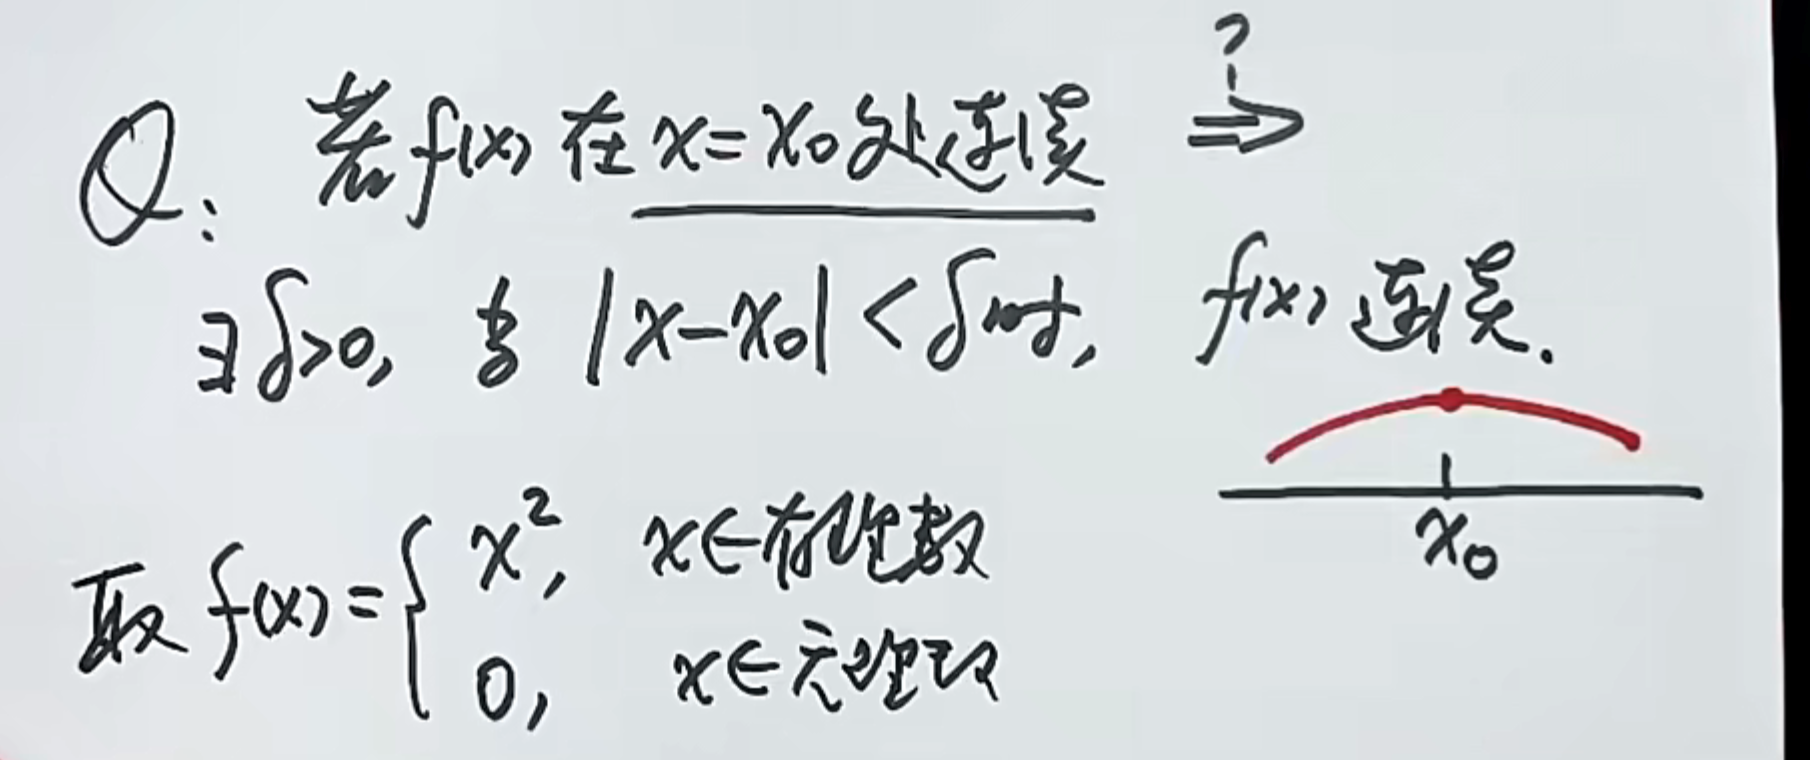 Q: 若f(x)在x=x₀处连续 ?⇒
∃δ>0, 当|x-x₀|<δ时, f(x)连续.
x₀
取f(x)={x², x∈有理数
0, x∈无理数